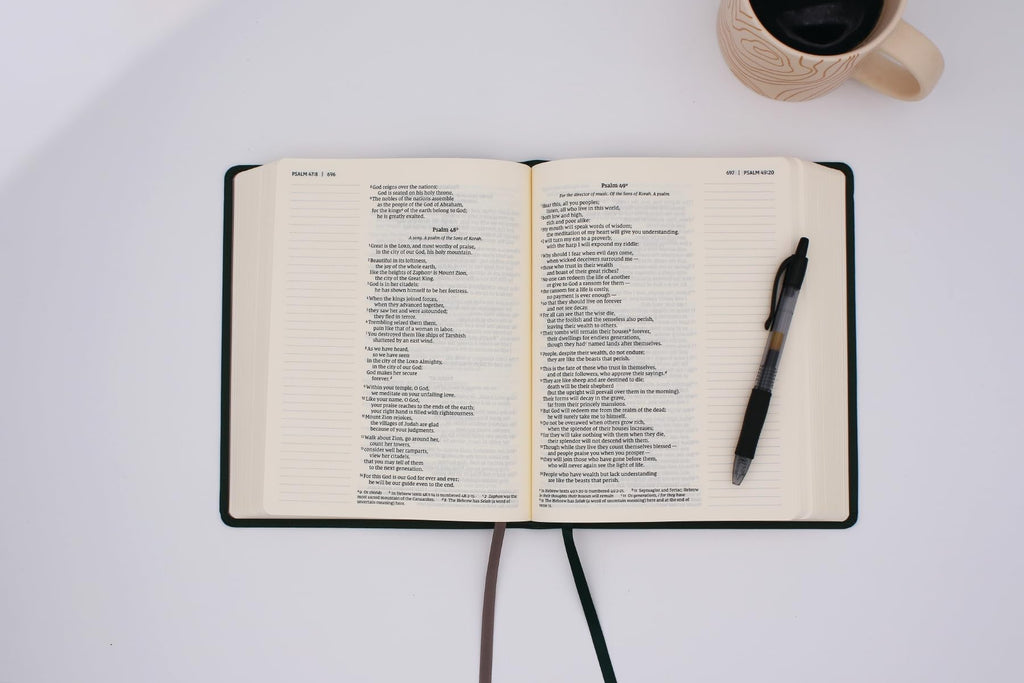 PSALM 47:8 | 696
⁸God reigns over the nations;
God is seated on his holy throne.
⁹The nobles of the nations assemble
as the people of the God of Abraham,
for the kings of the earth belong to God;
he is greatly exalted.
Psalm 48
A song. A psalm of the Sons of Korah.
¹Great is the LORD, and most worthy of praise,
in the city of our God, his holy mountain.
²Beautiful in its loftiness,
the joy of the whole earth,
like the heights of Zaphon is Mount Zion,
the city of the Great King.
³God is in her citadels;
he has shown himself to be her fortress.
⁴When the kings joined forces,
when they advanced together,
⁵they saw her and were astounded;
they fled in terror.
⁶Trembling seized them there,
pain like that of a woman in labor.
⁷You destroyed them like ships of Tarshish
shattered by an east wind.
⁸As we have heard,
so we have seen
in the city of the LORD Almighty,
in the city of our God:
God makes her secure
forever.
⁹Within your temple, O God,
we meditate on your unfailing love.
¹⁰Like your name, O God,
your praise reaches to the ends of the earth;
your right hand is filled with righteousness.
¹¹Mount Zion rejoices,
the villages of Judah are glad
because of your judgments.
¹²Walk about Zion, go around her,
count her towers,
¹³consider well her ramparts,
view her citadels,
that you may tell of them
to the next generation.
¹⁴For this God is our God for ever and ever;
he will be our guide even to the end.
697 | PSALM 49:20
Psalm 49
For the director of music. Of the Sons of Korah. A psalm.
¹Hear this, all you peoples;
listen, all who live in this world,
²both low and high,
rich and poor alike:
³My mouth will speak words of wisdom;
the meditation of my heart will give you understanding.
⁴I will turn my ear to a proverb;
with the harp I will expound my riddle:
⁵Why should I fear when evil days come,
when wicked deceivers surround me —
⁶those who trust in their wealth
and boast of their great riches?
⁷No one can redeem the life of another
or give to God a ransom for them —
⁸the ransom for a life is costly,
no payment is ever enough —
⁹so that they should live on forever
and not see decay.
¹⁰For all can see that the wise die,
that the foolish and the senseless also perish,
leaving their wealth to others.
¹¹Their tombs will remain their houses forever,
their dwellings for endless generations,
though they had named lands after themselves.
¹²People, despite their wealth, do not endure;
they are like the beasts that perish.
¹³This is the fate of those who trust in themselves,
and of their followers, who approve their sayings.
¹⁴They are like sheep and are destined to die;
death will be their shepherd
(but the upright will prevail over them in the morning).
Their forms will decay in the grave,
far from their princely mansions.
¹⁵But God will redeem me from the realm of the dead;
he will surely take me to himself.
¹⁶Do not be overawed when others grow rich,
when the splendor of their houses increases;
¹⁷for they will take nothing with them when they die,
their splendor will not descend with them.
¹⁸Though while they live they count themselves blessed —
and people praise you when you prosper —
¹⁹they will join those who have gone before them,
who will never again see the light of life.
²⁰People who have wealth but lack understanding
are like the beasts that perish.